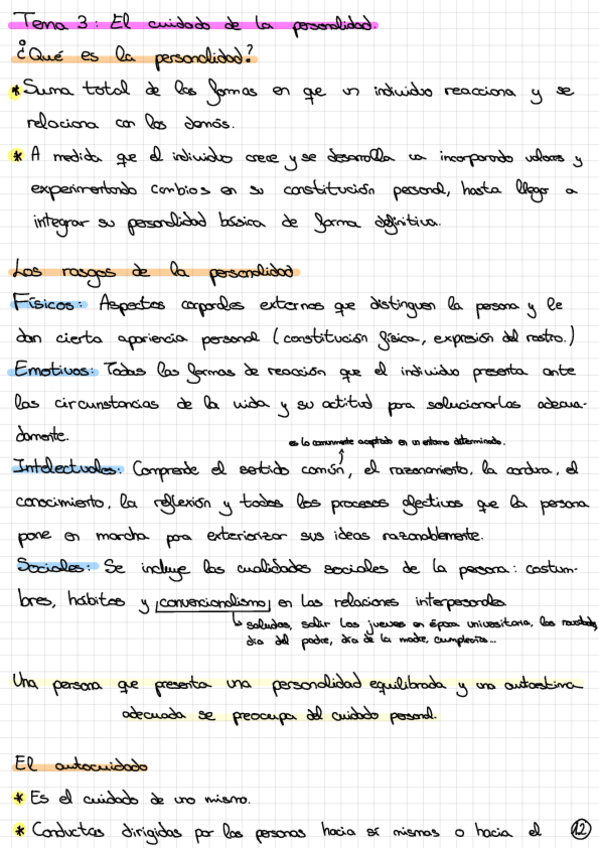 Tema 3: El cuidado de la personalidad.
¿Qué es la personalidad?
* Suma total de las formas en que un individuo reacciona y se
relaciona con los demás.
* A medida que el individuo crece y se desarrolla va incorporando valores y
experimentando cambios en su constitución personal, hasta llegar a
integrar su personalidad básica de forma definitiva.
Los rasgos de la personalidad
Físicos: Aspectos corporales externos que distinguen la persona y le
dan cierta apariencia personal (constitución física, expresión del rostro.)
Emotivos: Todas las formas de reacción que el individuo presenta ante
las circunstancias de la vida y su actitud para solucionarlas adecua-
damente.
es lo comunmente aceptado en un entorno determinado.
Intelectuales: Comprende el sentido común, el razonamiento, la cordura, el
conocimiento, la reflexión y todos los procesos afectivos que la persona
pone en marcha para exteriorizar sus ideas razonablemente.
Sociales: Se incluye las cualidades sociales de la persona: costum-
bres, hábitos y convencionalismo en las relaciones interpersonales
saludos, salir los jueves en época universitaria, las novatadas,
día del padre, día de la madre, cumpleaños...
Una persona que presenta una personalidad equilibrada y una autoestima
adecuada se preocupa del cuidado personal.
El autocuidado
* Es el cuidado de uno mismo.
* Conductas dirigidas por las personas hacia sí mismas o hacia el 12